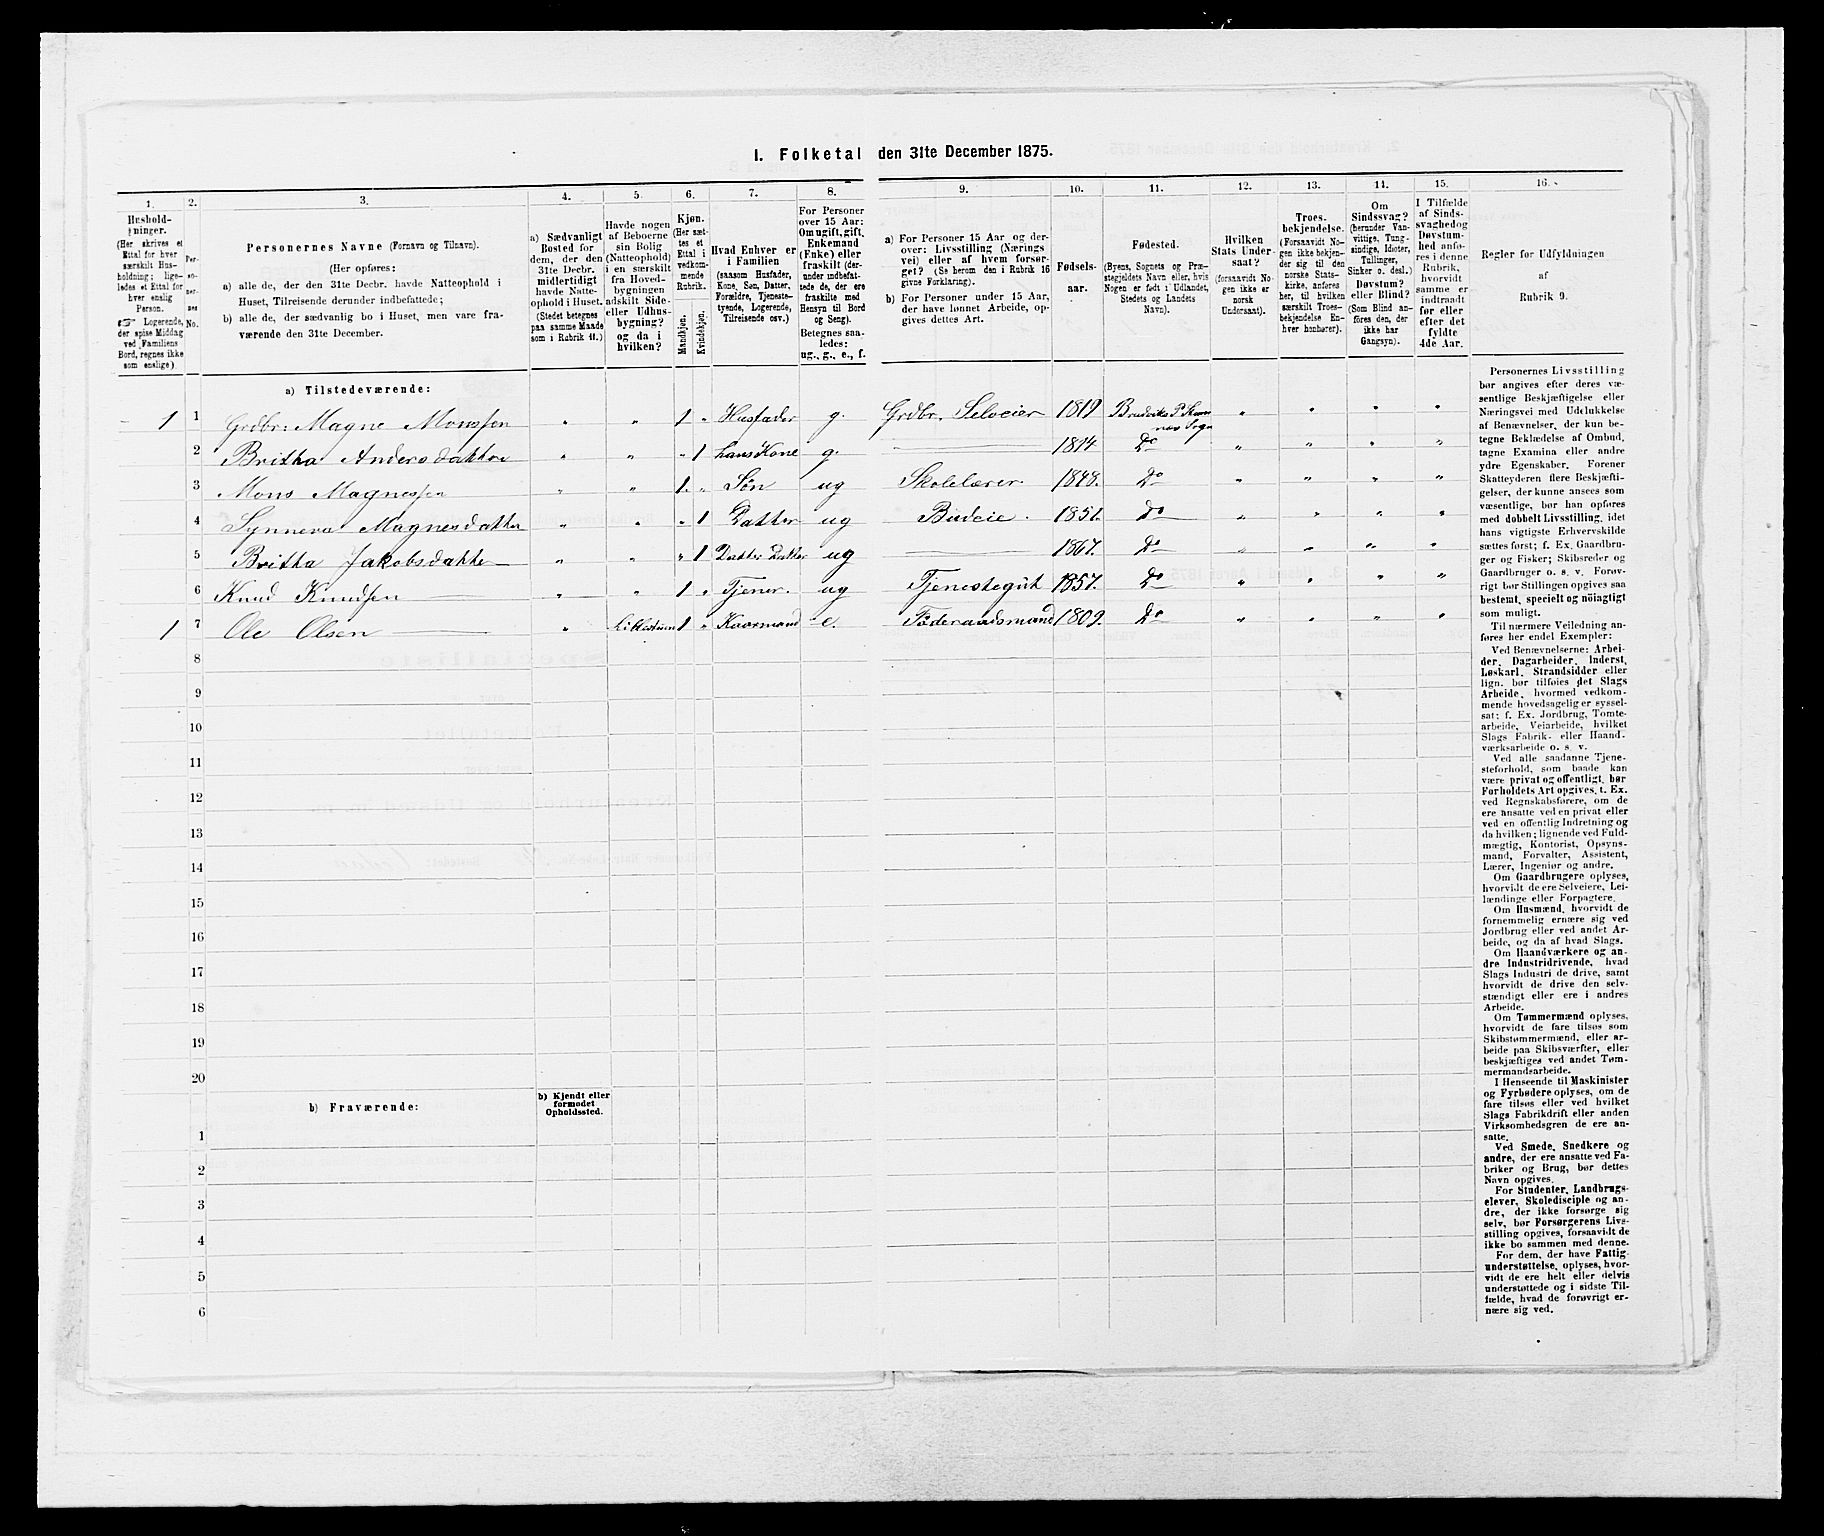 I. Folketal den 31te December 1875.
1. 2. 3. 4. 5. 6. 7. 8. 9. 10. 11. 12. 13. 14. 15. 16.
Hushold-
ninger.
(Her skrives et
Ettal for hver
særskilt Hus-
holdning; lige-
ledes et Ettal for
hver enslig
Person.
☞ Logerende,
der spise Middag
ved Familiens
Bord, regnes ikke
som enslige).
Per-
so-
ner-
nes
No.
Personernes Navne (Fornavn og Tilnavn).
(Her opføres:
a) alle de, der den 31te Decbr. havde Natteophold i
Huset, Tilreisende derunder indbefattede;
b) alle de, der sædvanlig bo i Huset, men vare fra-
værende den 31te December.
a) Sædvanligt
Bosted for
dem, der den
31te Decbr.
midlertidigt
havde Natte-
ophold i Huset.
(Stedet betegnes
paa samme Maade
som i Rubrik 11.)
Havde nogen
af Beboerne
sin Bolig
(Natteophold)
i en særskilt
fra Hoved-
bygningen
adskilt Side-
eller Udhus-
bygning?
og da i
hvilken?
Kjøn.
(Her sæt-
tes et
Ettal i
vedkom-
mende
Rubrik.
Mandkjøn.
Kvindekjøn.
Hvad Enhver er
i Familien
(saasom Husfader,
Kone, Søn, Datter,
Forældre, Tjeneste-
tyende, Logerende,
Tilreisende osv.)
For Personer
over 15 Aar:
Om ugift, gift,
Enkemand
(Enke) eller
fraskilt (der-
under indbefat-
tede de, der ere
fraskilte med
Hensyn til Bord
og Seng).
Betegnes saa-
ledes:
ug., g., e., f.
a) For Personer 15 Aar og der-
over: Livsstilling (Nærings
vei) eller af hvem forsør-
get? (Se herom den i Rubrik 16
givne Forklaring).
b) For Personer under 15 Aar,
der have lønnet Arbeide, op-
gives dettes Art.
Fødsels-
aar.
Fødested.
(Byens, Sognets og Præ-
stegjeldets Navn eller, hvis
Nogen er født i Udlandet,
Stedets og Landets
Navn).
Hvilken
Stats Under-
saat?
(forsaavidt No-
gen ikke er
norsk
Undersaat).
Troes-
bekjendelse.
(Forsaavidt No-
gen ikke bekjen-
der sig til den
norske Stats-
kirke, anføres
her, til hvilken
særskilt Troes-
bekjendelse En-
hver henhører).
Om
Sindssvag?
(herunder Van-
vittige, Tung-
sindige, Idioter,
Tullinger,
Sinker o. desl.)
Døvstum?
eller Blind?
(Som Blind an-
føres den, der
ikke har
Gangsyn).
I Tilfælde
af Sinds-
svaghed og
Døvstum-
hed anfø-
res i denne
Rubrik,
hvorvidt
samme er
indtraadt
før eller
efter det
fyldte
4de Aar.
Regler for Udfyldningen
af
Rubrik 9.
a) Tilstedeværende:
1 1 Grdbr: Magne Monssen " " 1 " Husfader g. Grdbr. Selveier 1819 Bruviks P. Ham-
nes Sogn " " " "
2 Britha Andersdatter " " " 1 hans Kone g. 1814 Do " " " "
3 Mons Magnessen " " 1 " Søn ug Skolelærer 1848. Do " " " "
4 Synneva Magnesdatter " " " 1 Datter ug Budeie. 1851. Do " " " "
5 Britha Jakobsdatter " " " 1 Datter Datter ug 1867. Do " " " "
6 Knud Knudsen " " 1 " Tjener. ug Tjenestegut 1857. Do " " " "
1 7 Ole Olsen " Lillestuen 1 " Kaarmand e. Føderaadsmand 1809. Do " " " "
8
9
10
11
12
13
14
15
16
17
18
19
20
b) Fraværende:
b) Kjendt eller
formodet
Opholdssted.
1
2
3
4
5
6
Personernes Livsstilling
bør angives efter deres væ-
sentlige Beskjæftigelse eller
Næringsvei med Udelukkelse
af Benævnelser, der kun be-
tegne Beklædelse af Ombud,
tagne Examina eller andre
ydre Egenskaber. Forener
Skatteyderen flere Beskjæfti-
gelser, der kunne ansees som
væsentlige, bør han opføres
med dobbelt Livsstilling, idet
hans vigtigste Erhvervskilde
sættes først; f. Ex. Gaardbru-
ger og Fisker; Skibsreder og
Gaardbruger o. s. v. Forøv-
rigt bør Stillingen opgives saa
bestemt, specielt og nöiagtigt
som muligt.
Til nærmere Veiledning an-
føres her endel Exempler:
Ved Benævnelserne: Arbei-
der, Dagarbeider, Inderst,
Løskarl, Strandsidder eller
lign. bør tilføies det Slags
Arbeide, hvormed vedkom-
mende hovedsagelig er syssel-
sat; f. Ex. Jordbrug, Tomte-
arbeide, Veiarbeide, hvilket
Slags Fabrik- eller Haand-
værksarbeide o. s. v.
Ved alle saadanne Tjene-
steforhold, som baade kan
være privat og offentligt, bør
Forholdets Art opgives, t. Ex.
ved Regnskabsførere, om de
ere ansatte ved en privat eller
ved en offentlig Indretning og
da hvilken; lignende ved Fuld-
mægtig, Kontorist, Opsyns-
mand, Forvalter, Assistent,
Lærer, Ingeniør og andre.
Om Gaardbrugere oplyses,
hvorvidt de ere Selveiere, Lei-
lændinge eller Forpagtere.
Om Husmænd, hvorvidt de
fornemmelig ernære sig ved
Jordbrug eller ved andet Ar-
beide, og da af hvad Slags.
Om Haandværkere og an-
dre Industridrivende, hvad
Slags Industri de drive, samt
hvorvidt de drive den selv-
stændigt eller ere i andres
Arbeide.
Om Tømmermænd oplyses,
hvorvidt de fare tilsøs som
Skibstømmermænd, eller ar-
beide paa Skibsværfter, eller
beskjæftiges ved andet Tøm-
mermandsarbeide.
I Henseende til Maskinister
og Fyrbødere oplyses, om de
fare tilsøs eller ved hvilket
Slags Fabrikdrift eller anden
Virksomhedsgren de ere an-
satte.
Ved Smede, Snedkere og
andre, der ere ansatte ved Fa-
briker og Brug, bør dettes
Navn opgives.
For Studenter, Landbrugs-
elever, Skoledisciple og an-
dre, der ikke forsørge sig
selv, bør Forsørgerens Livs-
stilling opgives, forsaavidt de
ikke bo sammen med denne.
For dem, der have Fattig-
understøttelse, oplyses, hvor-
vidt de ere helt eller delvis
understøttede og i sidste Til-
fælde, hvad de forøvrigt er-
nære sig ved.